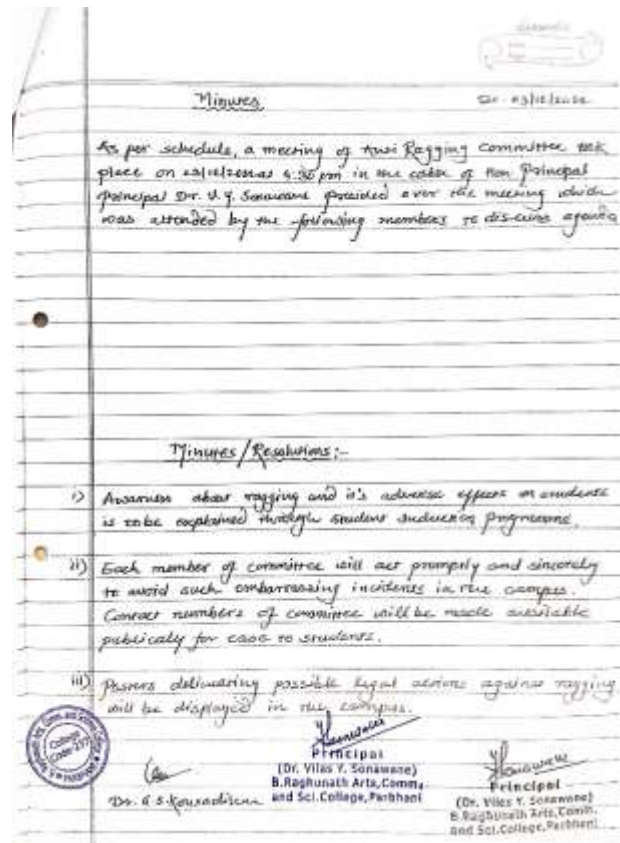 Minutes
As per schedule, a meeting of Anti Ragging Committee took
place on at 4:30 pm in the cabin of Hon Principal
Principal Dr. V. Y. Sonawane presided over the meeting which
was attended by the following members to discuss agenda
Minutes/Resolutions:-
i) Awarness about ragging and it's adverse effects on students
is to be explained through student induction Programme.
ii) Each member of committee will act promptly and sincerely
to avoid such embarrassing incidents in the campus.
Contact numbers of committee will be made available
publicaly for ease to students.
iii) Posters delineating possible legal actions against ragging
will be displayed in the campus.
Dr. G S.
Principal
(Dr. Vilas Y. Sonawane)
B.Raghunath Arts, Comm.
and Sci.College, Parbhani
Principal
(Dr. Vilas Y. Sonawane)
B.Raghunath Arts, Comm.
and Sci.College, Parbhani